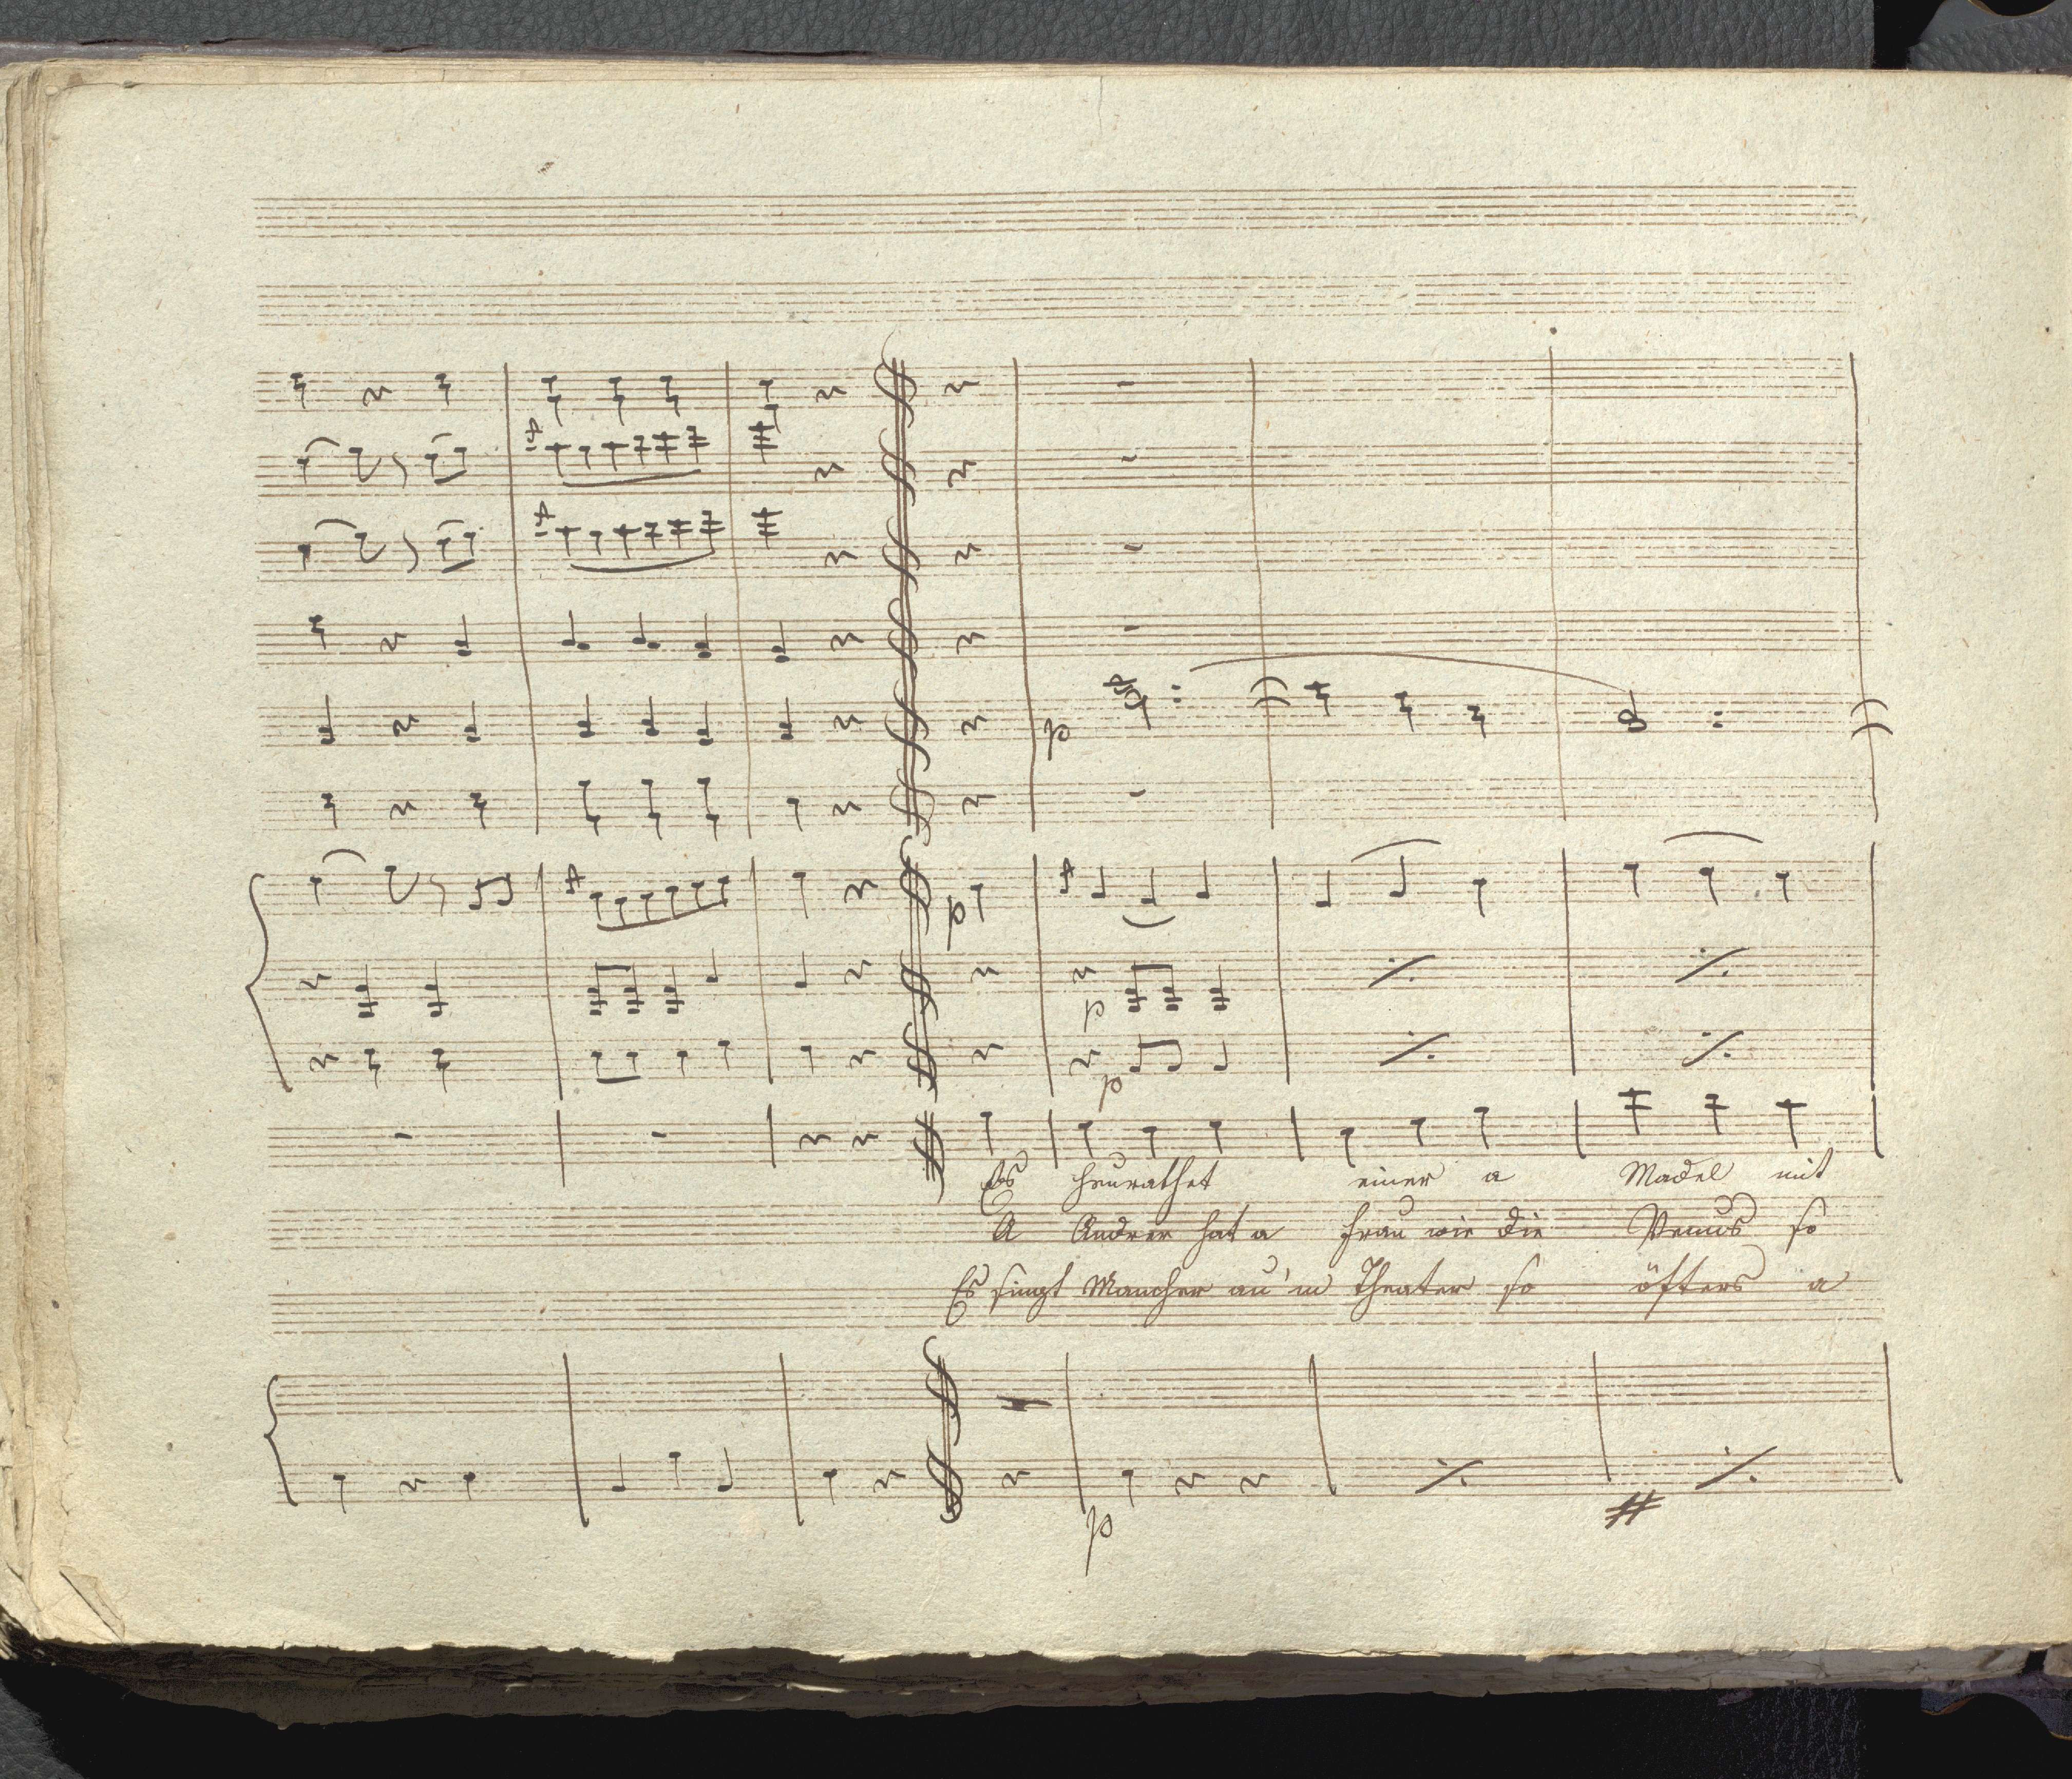 p
p
p
p
Es heurathet einer a Madel mit
A Andrer hat a Frau wie die Venus so
Es singt Mancher au'm Theater so öfters a
p